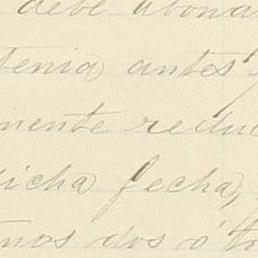 debe abona
tenia antes
mente redu
dicha fecha,
mos dos ó